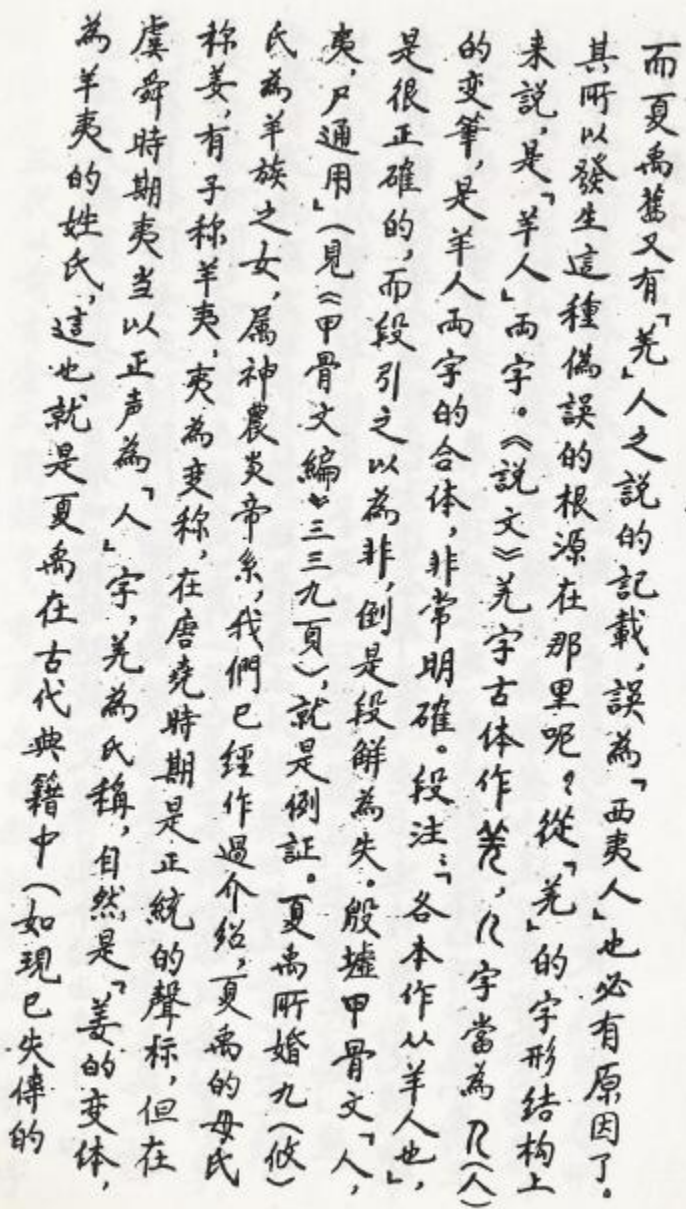 而夏禹舊又有「羌」人之說的記載，誤為「西夷人」也必有原因了。
其所以發生這種偽誤的根源在那里呢？從「羌」的字形结构上
来説，是「羊人」両字。《説文》羌字古体作，字當為（人）
的变筆，是羊人両字的合体，非常明確。段注：「各本作从羊人也」，
是很正確的，而段引之以為非，倒是段解為失。殷墟甲骨文「人，
夷，尸通用」（見《甲骨文編》三三九頁），就是例証。夏禹所婚九（攸）
氏為羊族之女，属神農炎帝系，我們已經作過介紹，夏禹的母氏
称姜，有子称羊夷，夷為变称，在唐堯時期是正統的聲标，但在
虞舜時期夷当以正声為「人」字，羌為氏稱，自然是「姜的变体，
為羊夷的姓氏，這也就是夏禹在古代典籍中（如現已失傳的